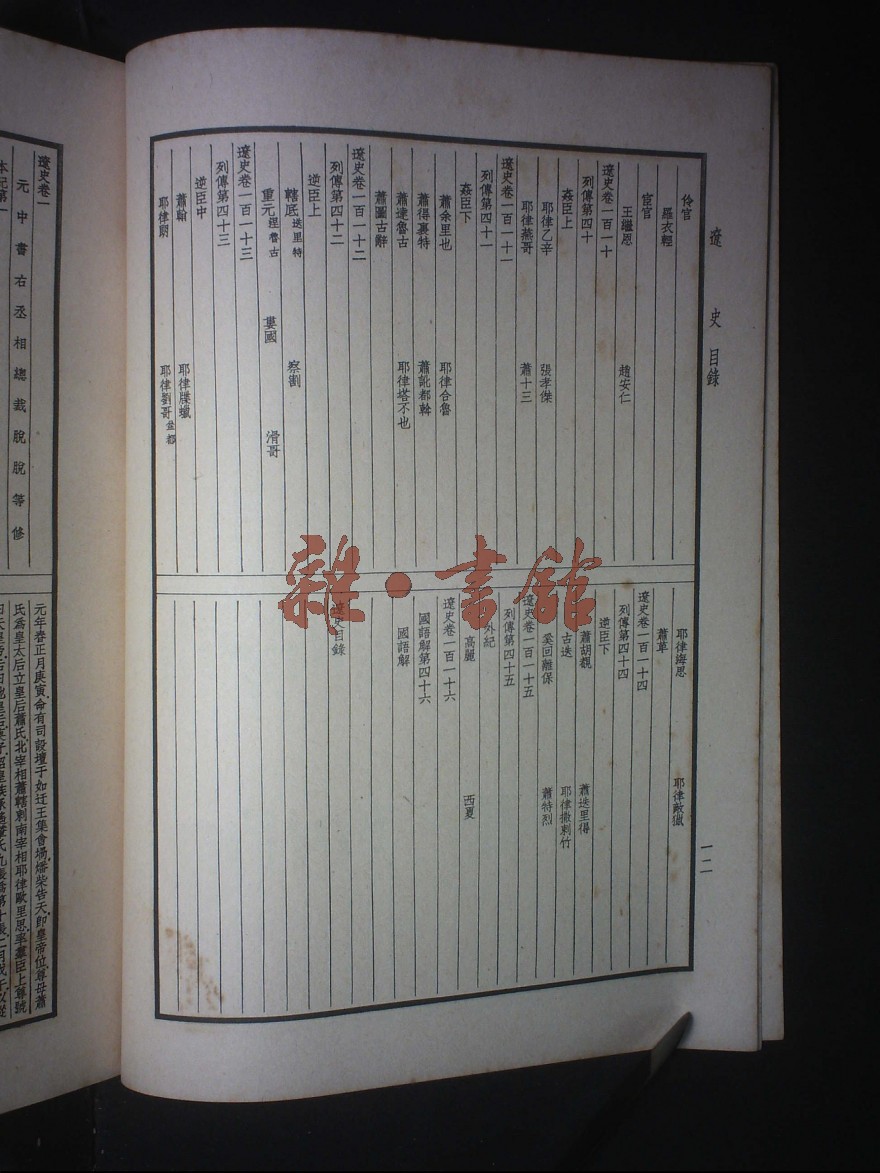 遼史 目錄
一二
伶官
羅衣輕
宦官
王繼恩 趙安仁
遼史卷一百一十
列傳第四十
姦臣上
耶律乙辛 張孝傑
耶律燕哥 蕭十三
遼史卷一百一十一
列傳第四十一
姦臣下
蕭余里也 耶律合魯
蕭得裏特 蕭訛都斡
蕭達魯古 耶律塔不也
蕭圖古辭
遼史卷一百一十二
列傳第四十二
逆臣上
轄底 迭里特 察割
重元 涅魯古 婁國 滑哥
遼史卷一百一十三
列傳第四十三
逆臣中
蕭翰 耶律牒蠟
耶律朗 耶律劉哥 盆都
耶律海思 耶律敵獵
蕭革
遼史卷一百一十四
列傳第四十四
逆臣下
蕭胡覩 蕭迭里得
古迭 耶律撒剌竹
奚回離保 蕭特烈
遼史卷一百一十五
列傳第四十五
外紀
高麗 西夏
遼史卷一百一十六
國語解第四十六
國語解
遼史目錄
雜·書館
遼史卷一
元中書右丞相總裁脫脫等修
本紀第一
元年春正月庚寅命有司設壇于如迂王集會堝燔柴告天即皇帝位尊母蕭
氏爲皇太后立皇后蕭氏北宰相蕭轄剌南宰相耶律歐里思率羣臣上尊號